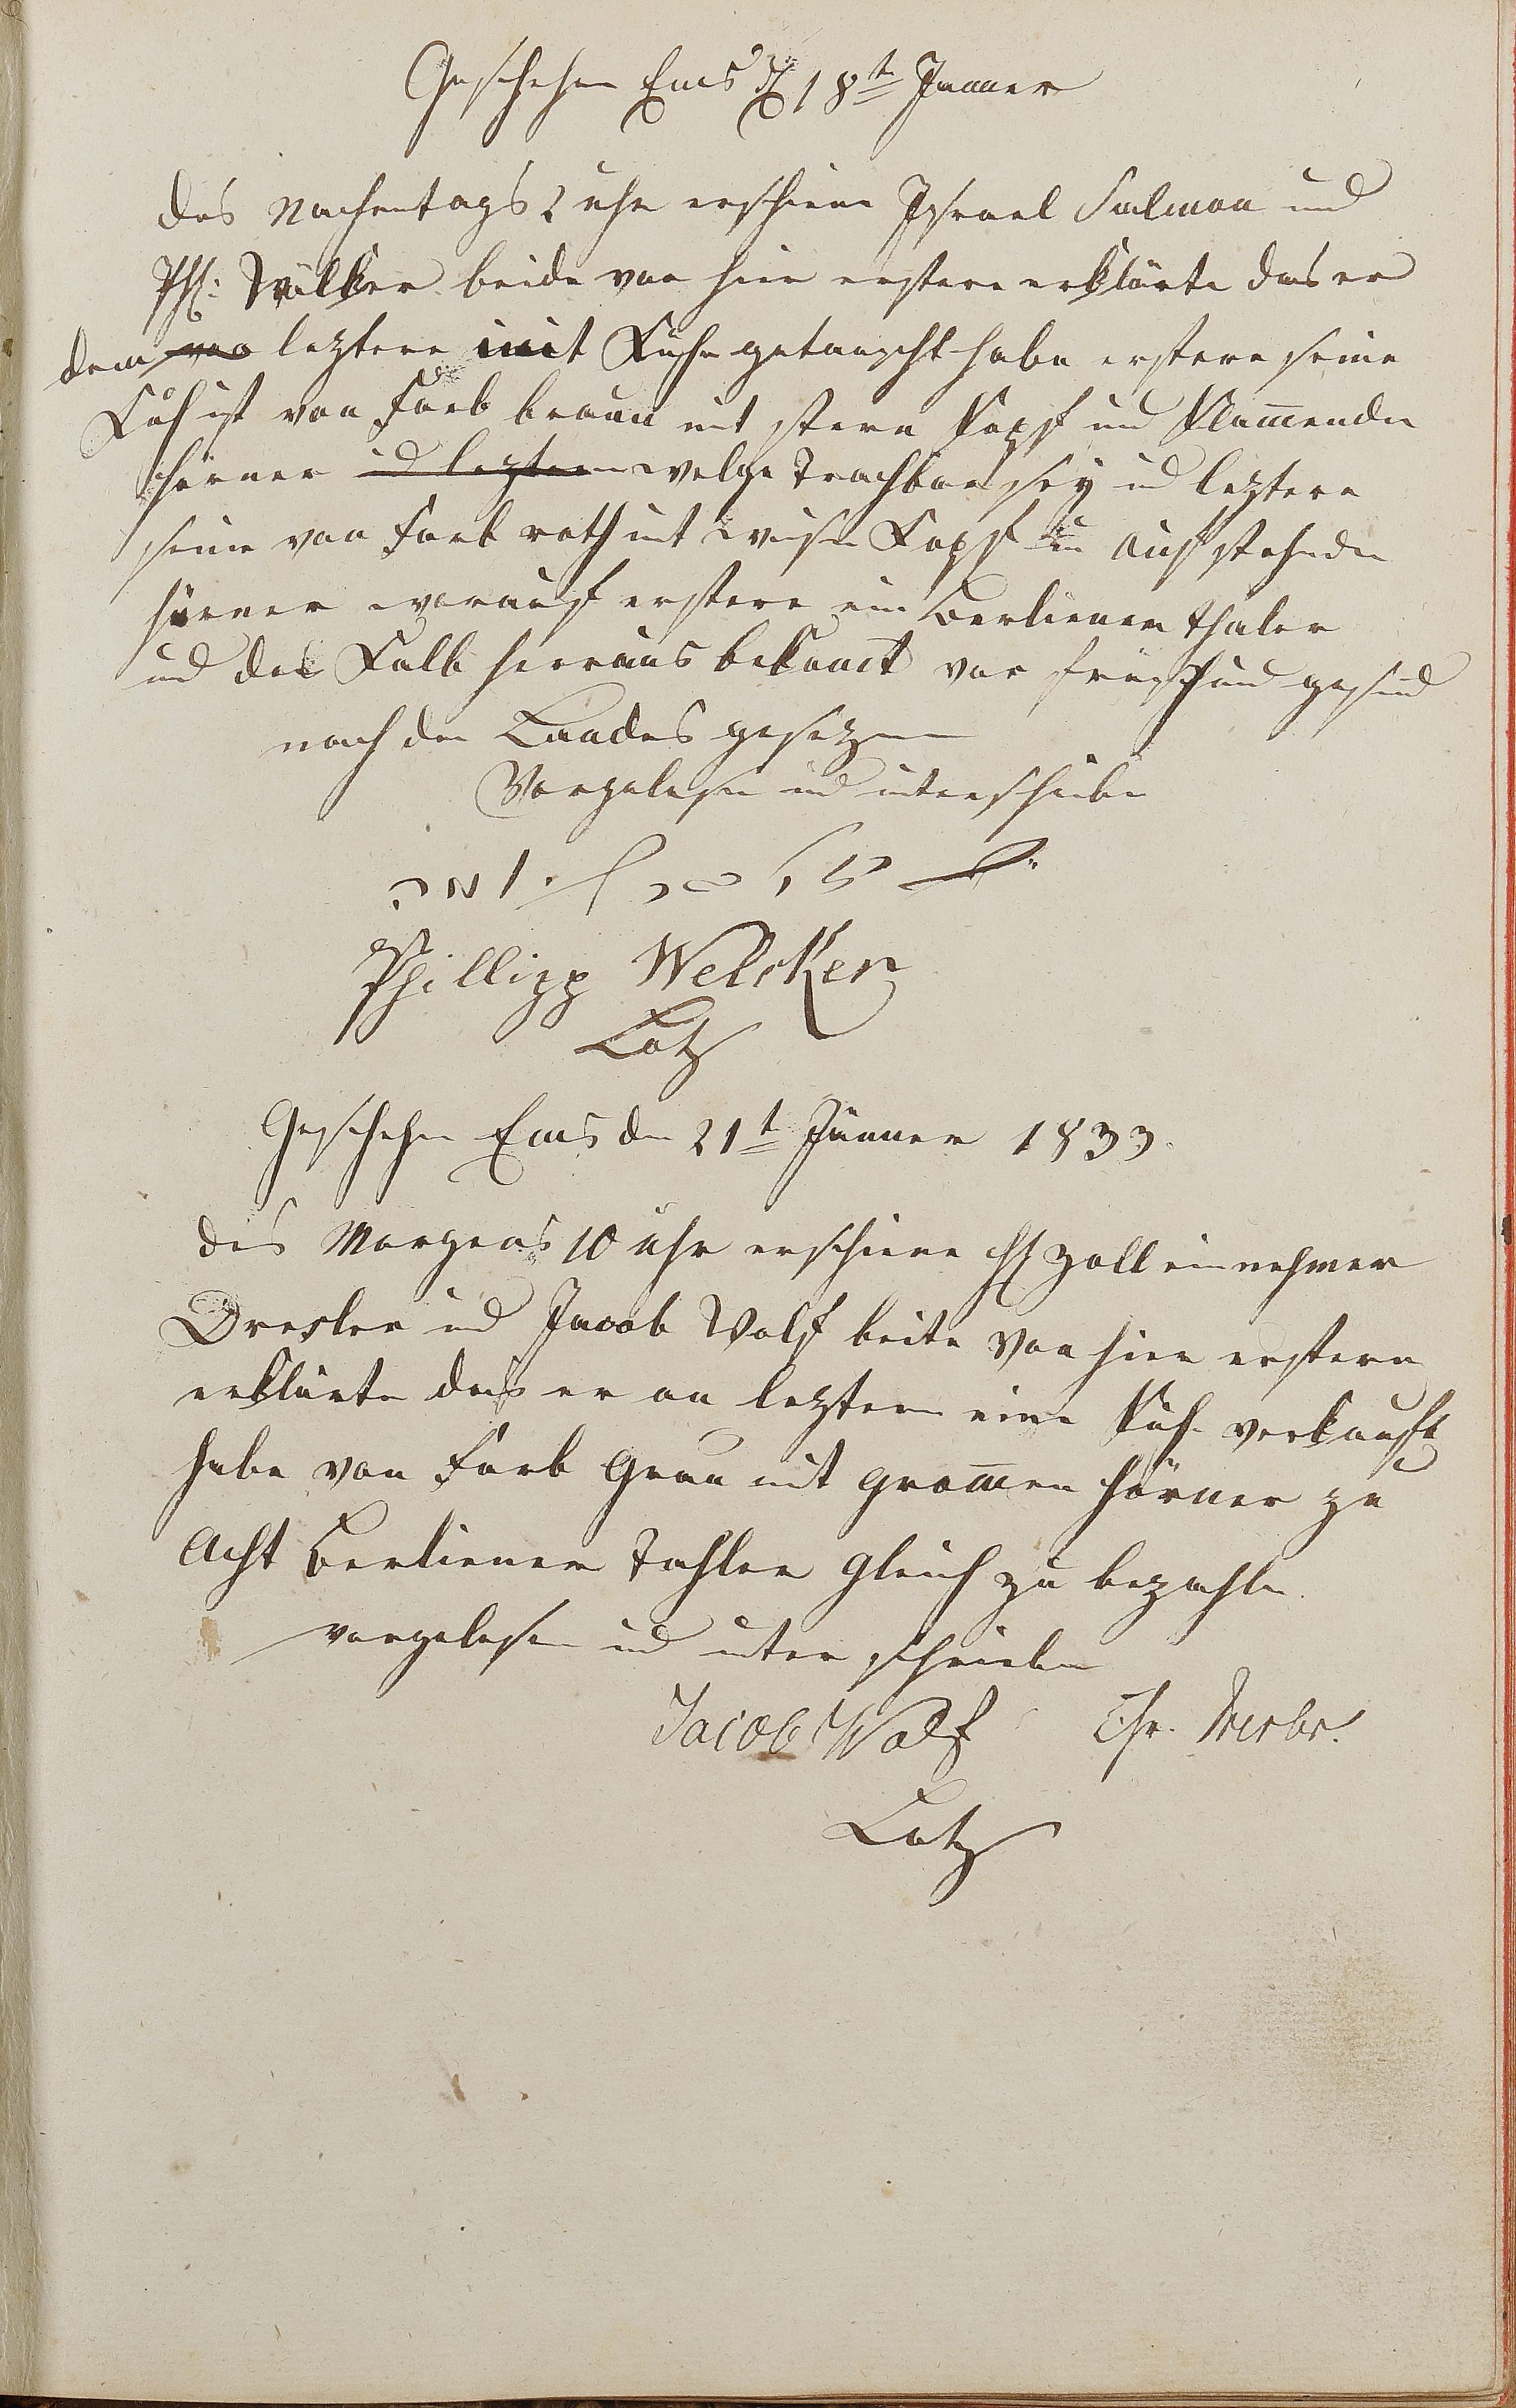 Geschehen Ems d 18t Janner
des Nachmtags 2 uhr erschiene Israel Salmon und
Phl: Wälker beide von hier erstere erklärte das er
dem von leztere mit Kühe getauscht habe erstere seine
Kuh ist von Farb braun mit stern Kopf und Klam̄ende
Hörner ud leztere welge Trachbar sey ud leztere
seine von Farb roth mit weise Kopf un auf stehende
Hörner worauf erstere ein Berliener thaler
ud das Kalb heraus bekomt vor frisch und gesund
nach den Landes gesezen
Vorgelesen und unterschrieben
Phillipp Welcker
Lotz
Geschehen Ems den 21t Jänner 1833.
des Morgens 10 uhr erschiene H zolleinnehmer
Dresler ud Jacob Wolf beite von hier erstere
erklärte das er an leztern eine Kuh verkauft
habe von Farb Grau mit grom̄en Hörner zu
Acht Berliener Tahler gleich zu bezahle.
vorgelesen ud unter schrieben
Jacob Wolf Chr. Dresler.
Lotz